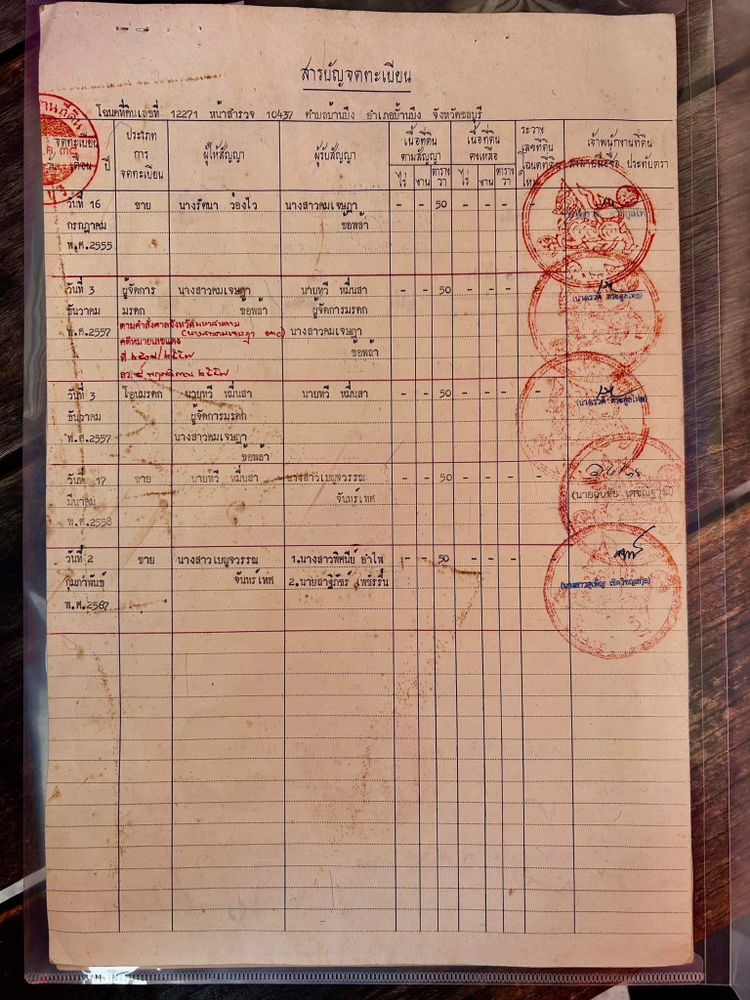 สารบัญจดทะเบียน
โฉนดที่ดินเลขที่ 12271 หน้าสำรวจ 10437 ตำบลบ้านบึง อำเภอบ้านบึง จังหวัดชลบุรี
จดทะเบียน
วัน เดือน ปี
ประเภท
การ
จดทะเบียน
ผู้ให้สัญญา
ผู้รับสัญญา
เนื้อที่ดิน
ตามสัญญา
ไร่ งาน ตาราง
วา
เนื้อที่ดิน
คงเหลือ
ไร่ งาน ตาราง
วา
ระวาง
เลขที่ดิน
โฉนดที่ดิน
ใหม่
เจ้าพนักงานที่ดิน
ลงลายมือชื่อ ประทับตรา
วันที่ 16 ขาย นางรัตนา ว่องไว นางสาวคมเจษฎา - - 50 - - - -
กรกฎาคม ข้อพล้า
พ.ศ.2555
วันที่ 3 ผู้จัดการ นางสาวคมเจษฎา นายทวี หมื่นสา - - 50 - - - -
ธันวาคม มรดก ข้อพล้า ผู้จัดการมรดก
พ.ศ.2557 ตามคำสั่งศาลจังหวัดมหาสารคาม นางสาวคมเจษฎา
คดีหมายเลขแดง ข้อพล้า
วันที่ 3 โอนมรดก นายทวี หมื่นสา นายทวี หมื่นสา - - 50 - - - -
ธันวาคม ผู้จัดการมรดก
พ.ศ.2557 นางสาวคมเจษฎา
ข้อพล้า
วันที่ 17 ขาย นายทวี หมื่นสา นางสาวเบญจวรรณ - - 50 - - - -
มีนาคม จันทร์เทศ
พ.ศ.2558
วันที่ 2 ขาย นางสาวเบญจวรรณ 1.นางสาวพิศนีย์ อำไพ - - 50 - - - -
กุมภาพันธ์ จันทร์เทศ 2.นายสาฐิภัชร์ เพชรรื่น
พ.ศ.2567